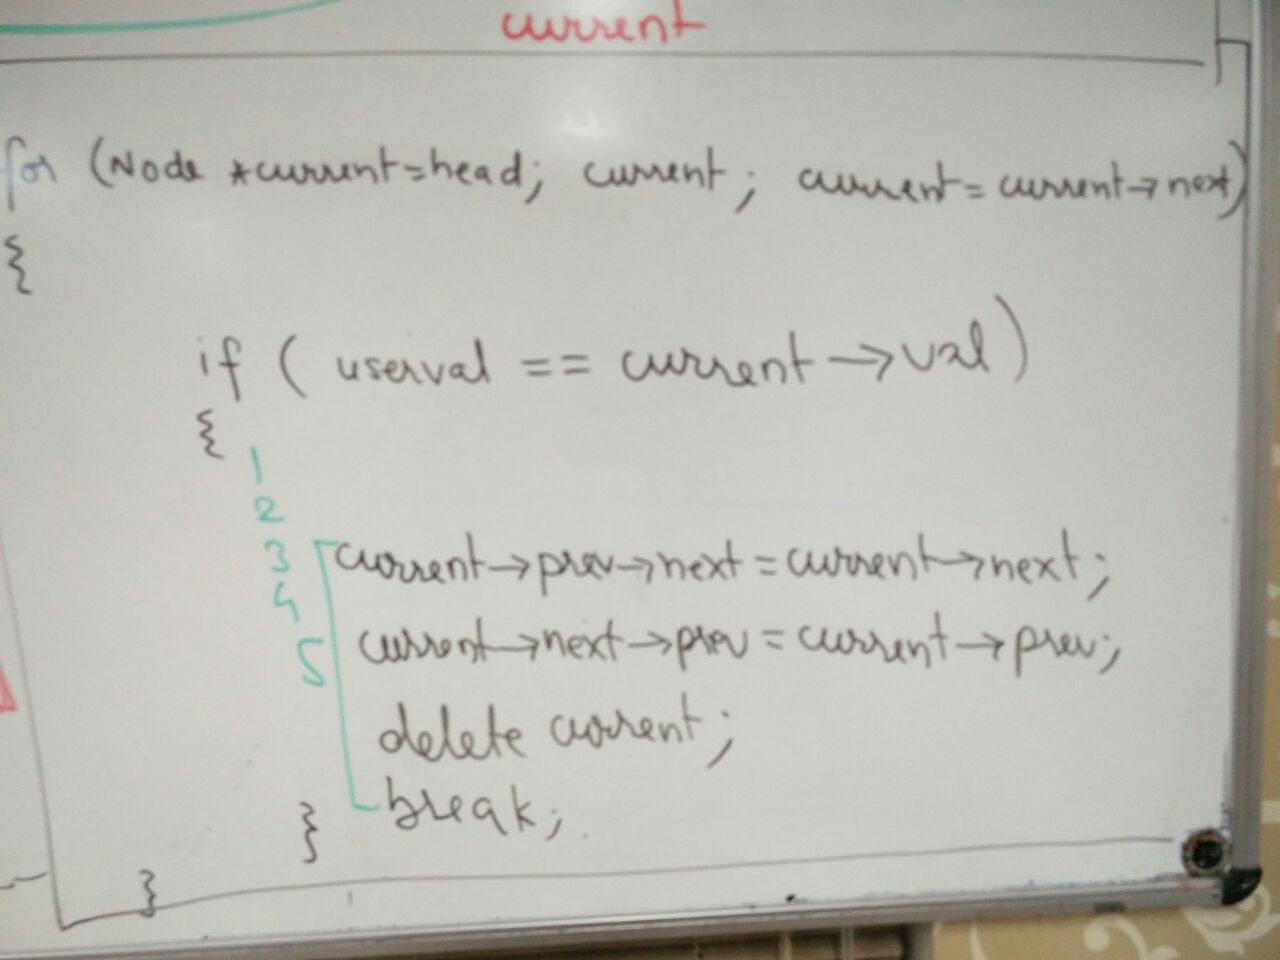 current
for (Node *current=head; current; current=current→next)
{
if ( userval == current→val)
{
1
2
3 current→prev→next=current→next;
4
5 current→next→prev=current→prev;
delete current;
break;
}
}